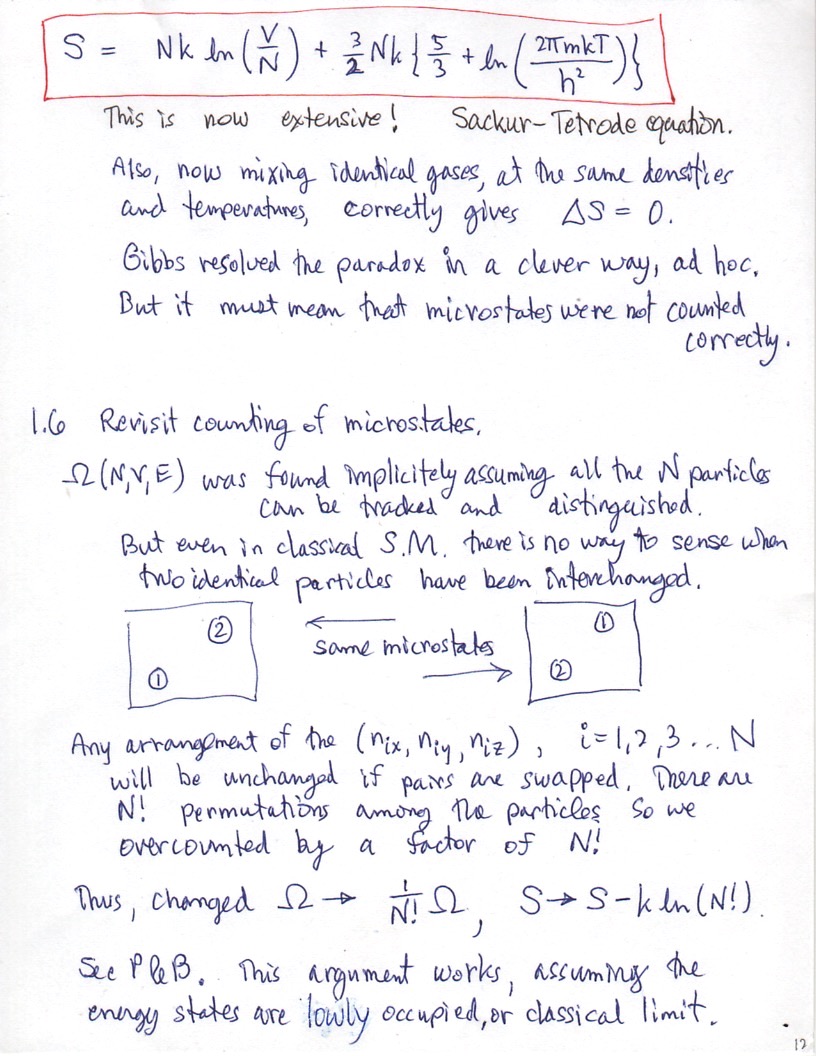 S = Nk ln(V/N) + 3/2 Nk { 5/3 + ln( 2πmkT / h² ) }
This is now extensive! Sackur-Tetrode equation.
Also, now mixing identical gases, at the same densities
and temperatures, correctly gives ΔS = 0.
Gibbs resolved the paradox in a clever way, ad hoc.
But it must mean that microstates were not counted
correctly.
1.6 Revisit counting of microstates.
Ω(N,V,E) was found implicitely assuming all the N particles
can be tracked and distinguished.
But even in classical S.M. there is no way to sense when
two identical particles have been interchanged.
② ①
same microstates
① ②
Any arrangement of the (nix, niy, niz), i=1,2,3...N
will be unchanged if pairs are swapped. There are
N! permutations among the particles so we
overcounted by a factor of N!
Thus, changed Ω → 1/N! Ω, S → S - k ln(N!).
See P&B. This argument works, assuming the
energy states are lowly occupied, or classical limit.
12